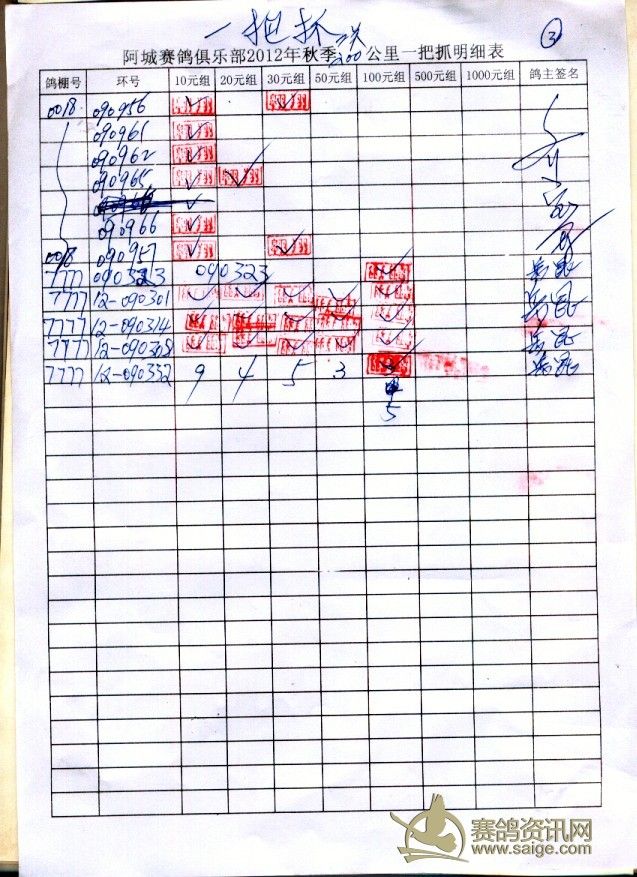 一把抓
③
阿城赛鸽俱乐部2012年秋季300公里一把抓明细表
鸽棚号 环号 10元组 20元组 30元组 50元组 100元组 500元组 1000元组 鸽主签名
0018 090956
090961
090962
090965
090966
0018 090957
7777 090323 090323
7777 12-090301
7777 12-090314
7777 12-090368
7777 12-090332 9 4 5 3
5
赛鸽资讯网
www.saige.com